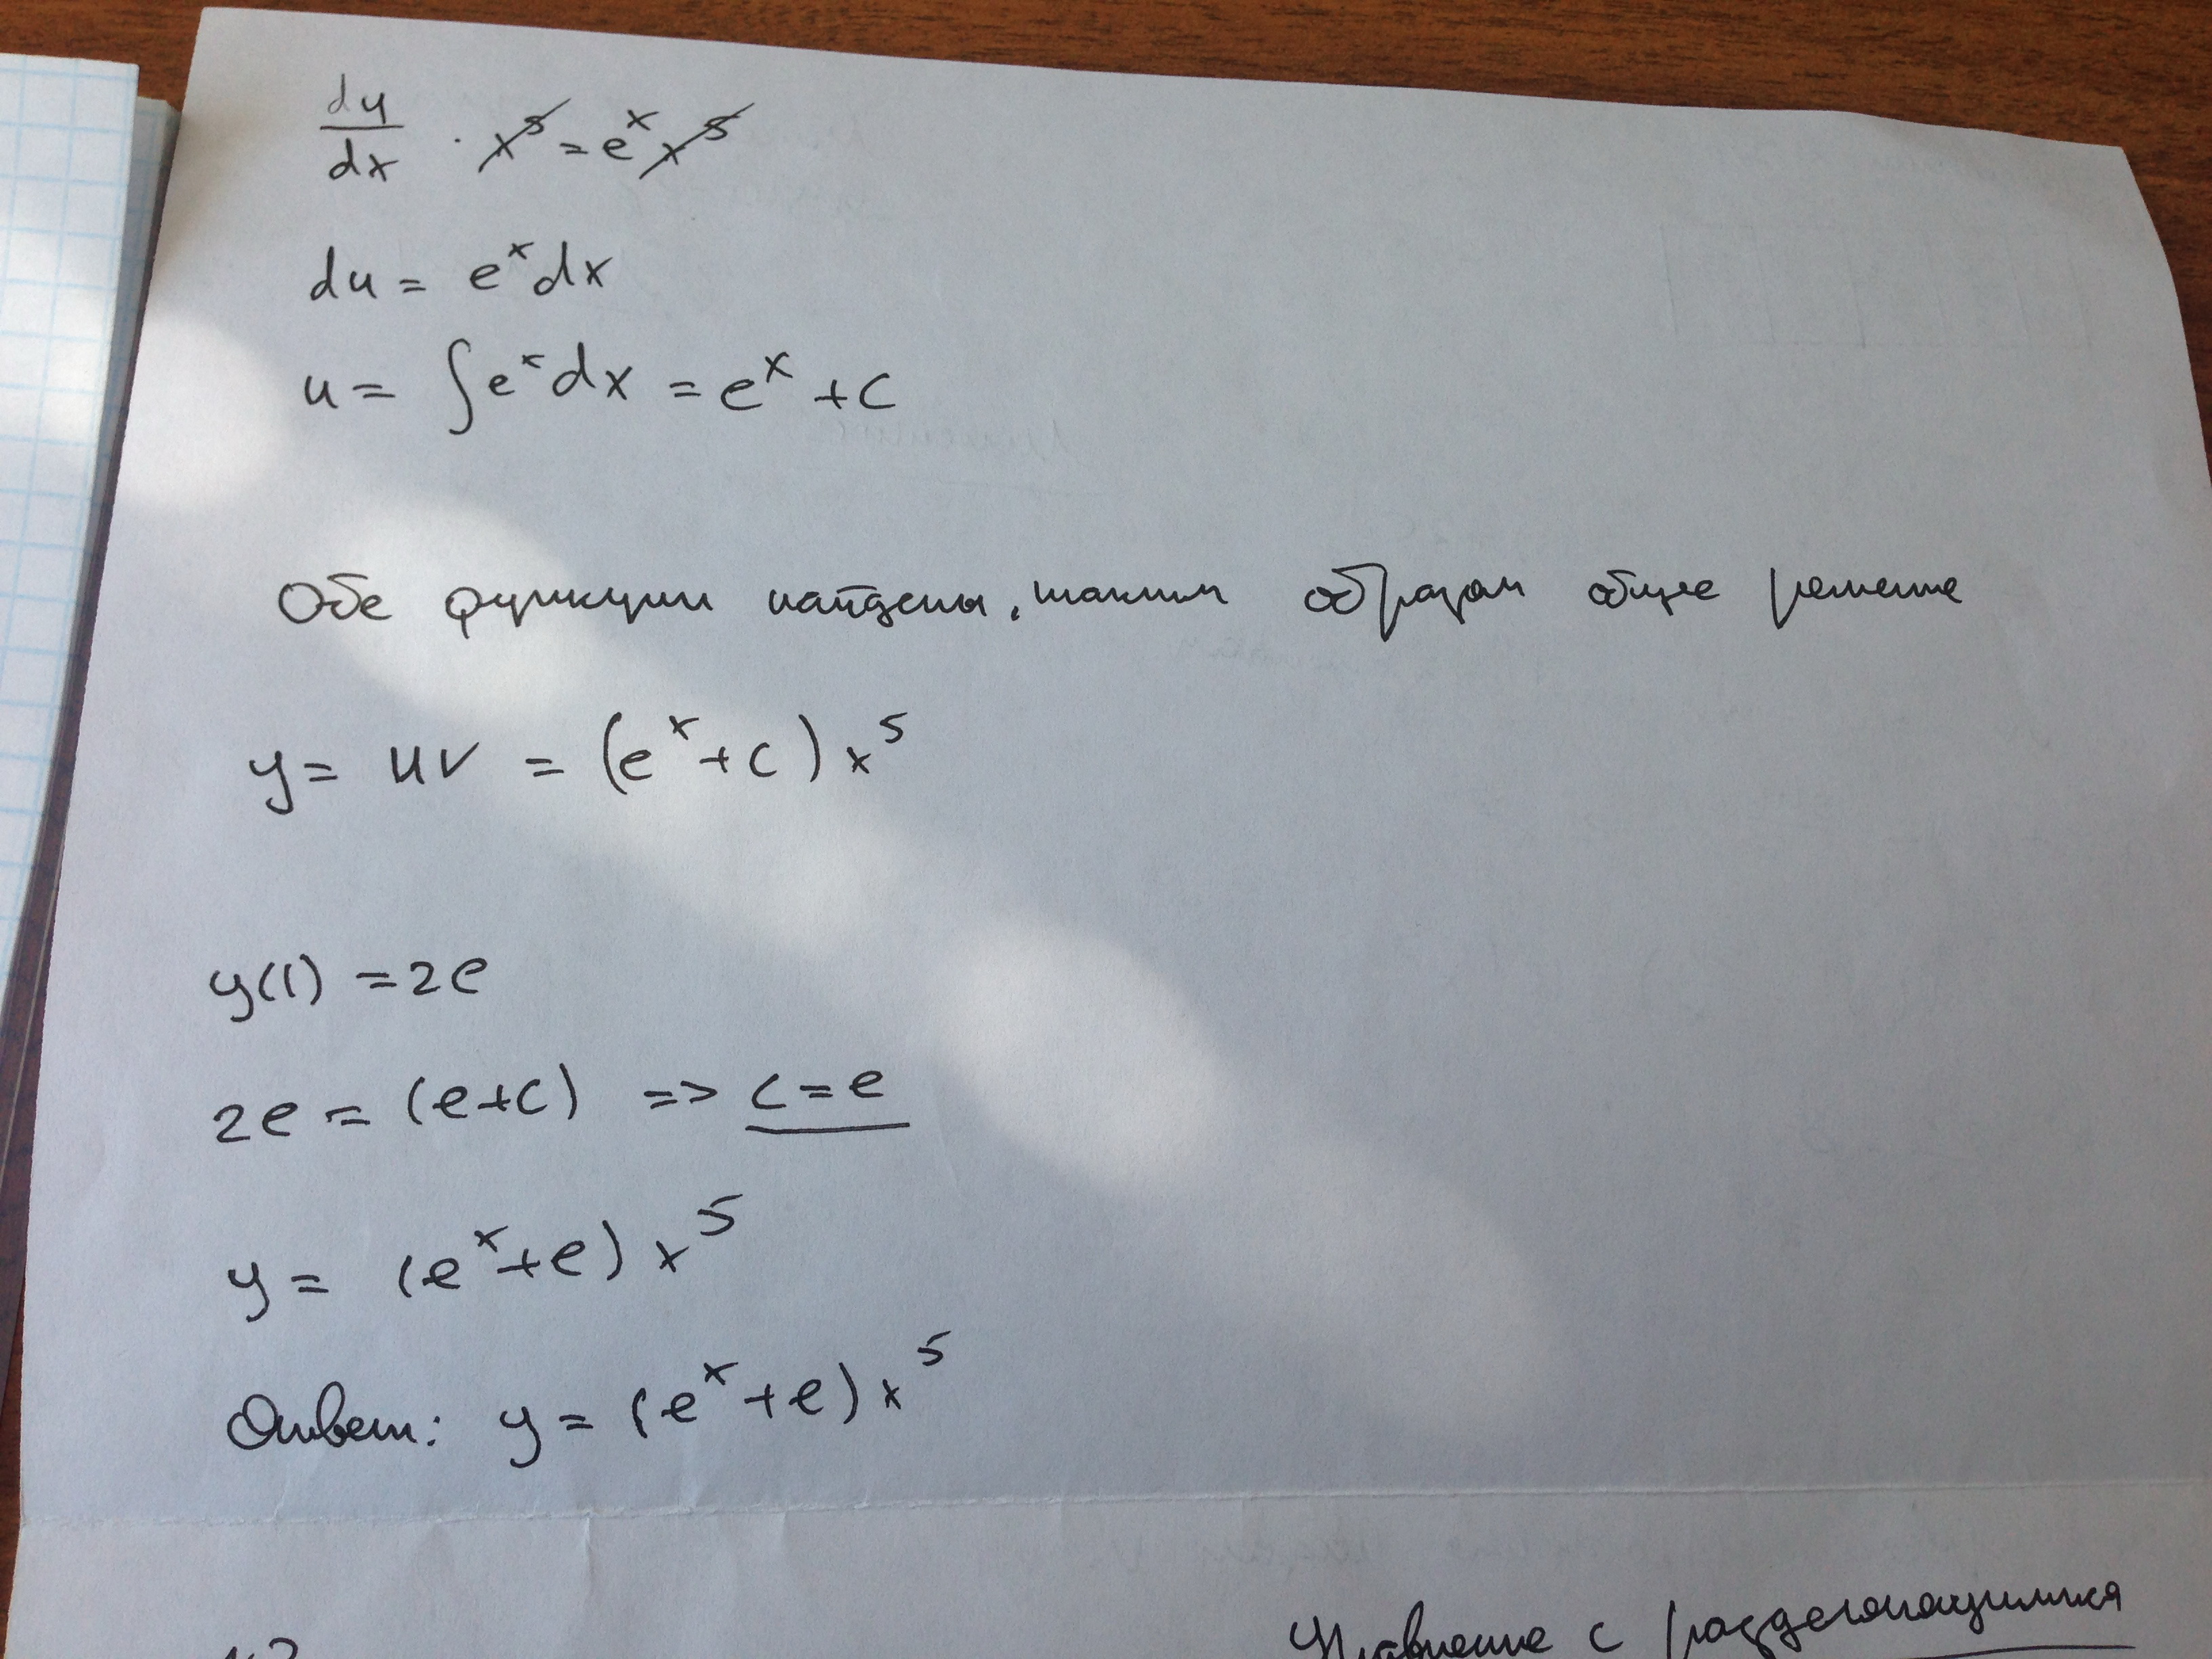 du/dx · x⁵ = eˣx⁵
du = eˣdx
u = ∫eˣdx = eˣ + c
Обе функции найдены, таким образом общее решение
y = uv = (eˣ + c)x⁵
y(1) = 2e
2e = (e+c) => c = e
y = (eˣ+e)x⁵
Ответ: y = (eˣ+e)x⁵
Уравнение с разделяющимися